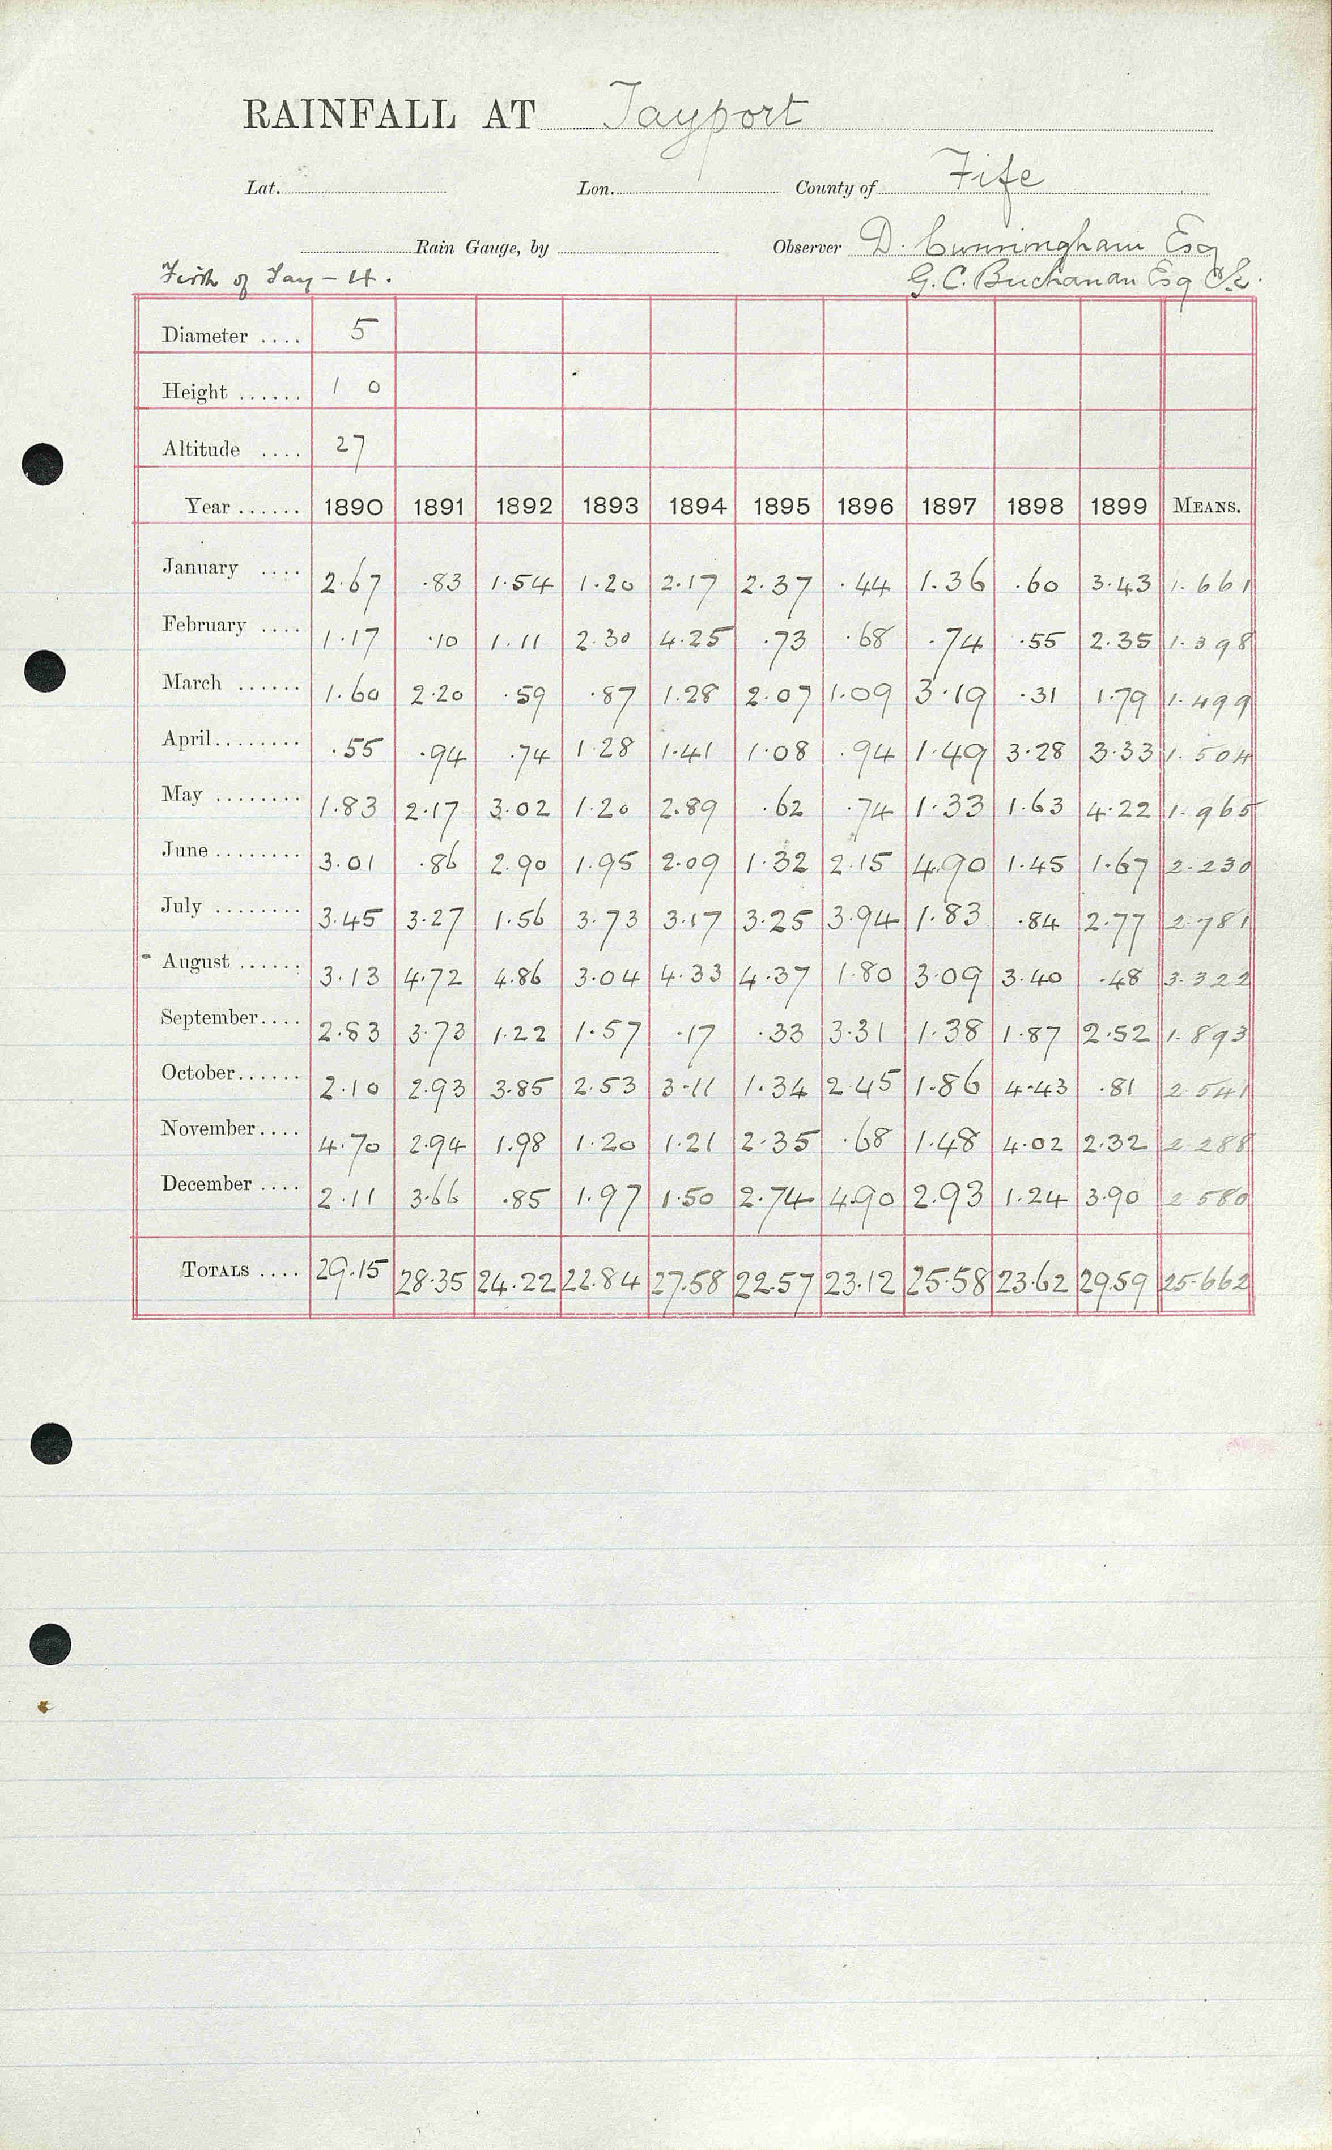 RAINFALL AT Tayport
Lat. Lon. County of Fife
Rain Gauge, by Observer D. Cunningham Esq
Firth of Tay - 4. G. C. Buchanan Esq
Diameter .... 5
Height ...... 1 0
Altitude .... 27
Year ...... 1890 1891 1892 1893 1894 1895 1896 1897 1898 1899 MEANS.
January .... 2.67 .83 1.54 1.20 2.17 2.37 .44 1.36 .60 3.43 1.661
February .... 1.17 .10 1.11 2.30 4.25 .73 .68 .74 .55 2.35 1.398
March ...... 1.60 2.20 .59 .87 1.28 2.07 1.09 3.19 .31 1.79 1.499
April........ .55 .94 .74 1.28 1.41 1.08 .94 1.49 3.28 3.33 1.504
May ........ 1.83 2.17 3.02 1.20 2.89 .62 .74 1.33 1.63 4.22 1.965
June ........ 3.01 .86 2.90 1.95 2.09 1.32 2.15 4.90 1.45 1.67 2.230
July ........ 3.45 3.27 1.56 3.73 3.17 3.25 3.94 1.83 .84 2.77 2.781
August ...... 3.13 4.72 4.86 3.04 4.33 4.37 1.80 3.09 3.40 .48 3.322
September.... 2.83 3.73 1.22 1.57 .17 .33 3.31 1.38 1.87 2.52 1.893
October...... 2.10 2.93 3.85 2.53 3.11 1.34 2.45 1.86 4.43 .81 2.541
November.... 4.70 2.94 1.98 1.20 1.21 2.35 .68 1.48 4.02 2.32 2.288
December .... 2.11 3.66 .85 1.97 1.50 2.74 4.90 2.93 1.24 3.90 2.580
TOTALS .... 29.15 28.35 24.22 22.84 27.58 22.57 23.12 25.58 23.62 29.59 25.662